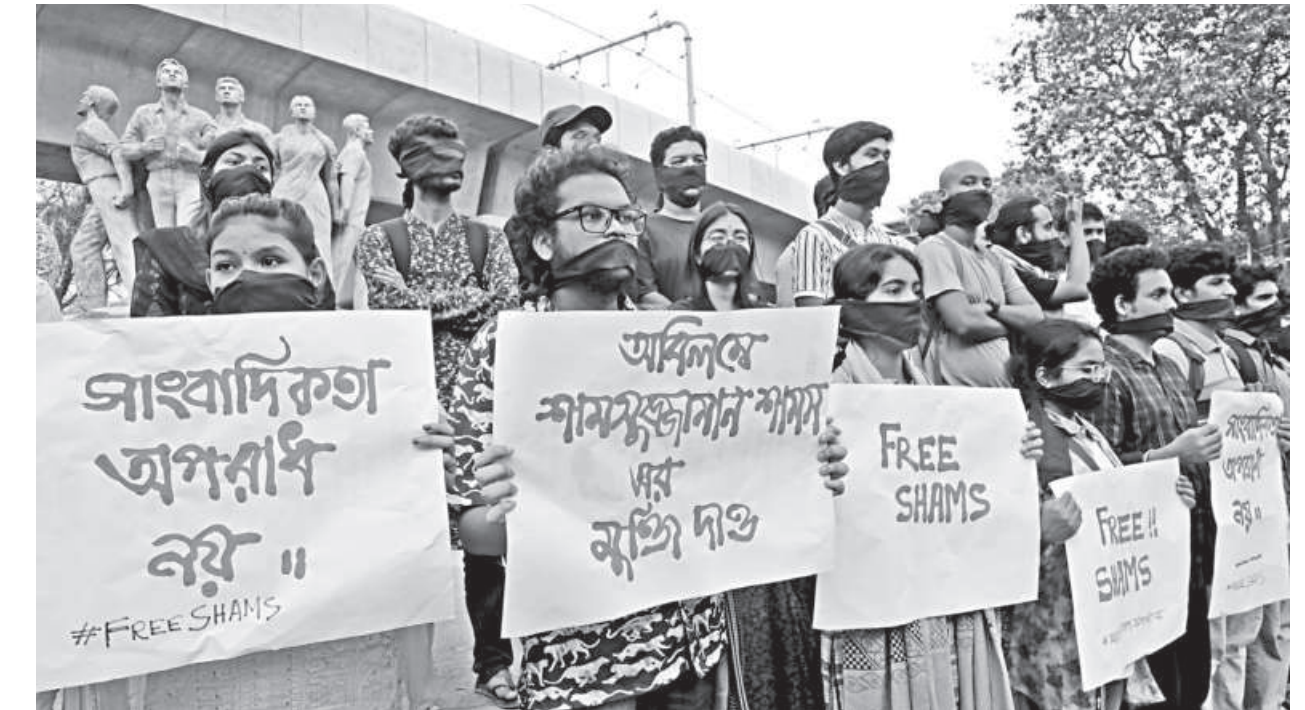 সাংবাদিকতা
অপরাধ
নয় ॥
#FREE SHAMS
অবিলম্বে
শামসুজ্জামান শামস
এর
মুক্তি দাও
FREE
SHAMS
FREE!!
SHAMS
সাংবাদিকতা
অপরাধ
নয় ॥